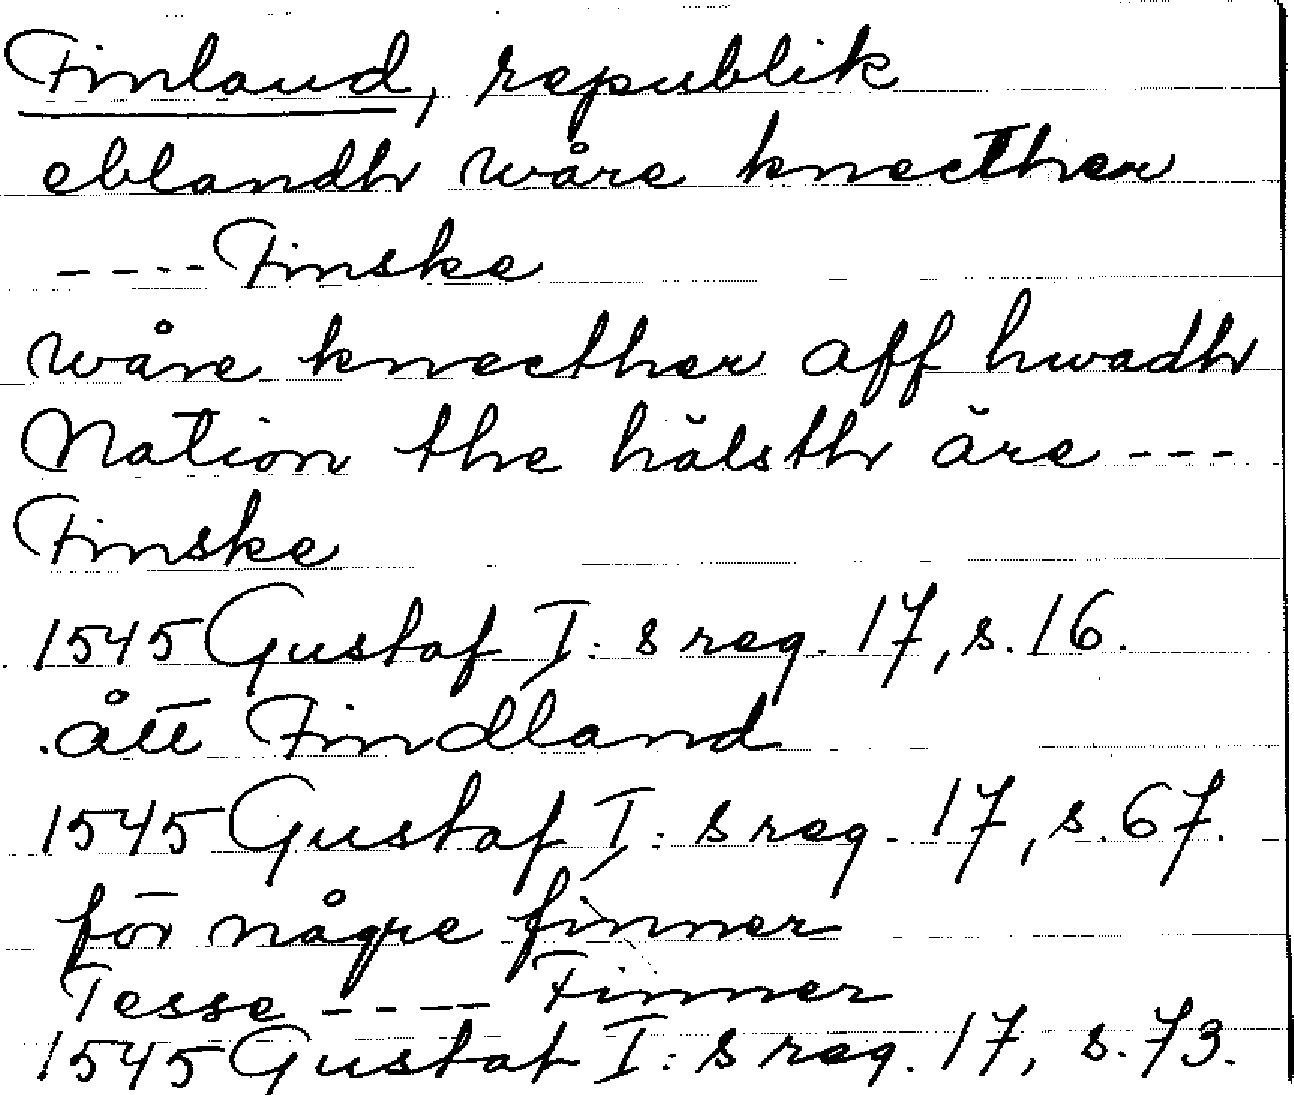 Finland, republik
eblandh wåre knecther
---- Finske
wåre knecther aff hwadh
Nation the hälsth äre ---
Finske
1545 Gustaf I:s reg. 17, s. 16.
ått Findland
1545 Gustaf I:s reg. 17, s. 67.
för någre finner
Tesse ---- Finner
1545 Gustaf I:s reg. 17, s. 73.